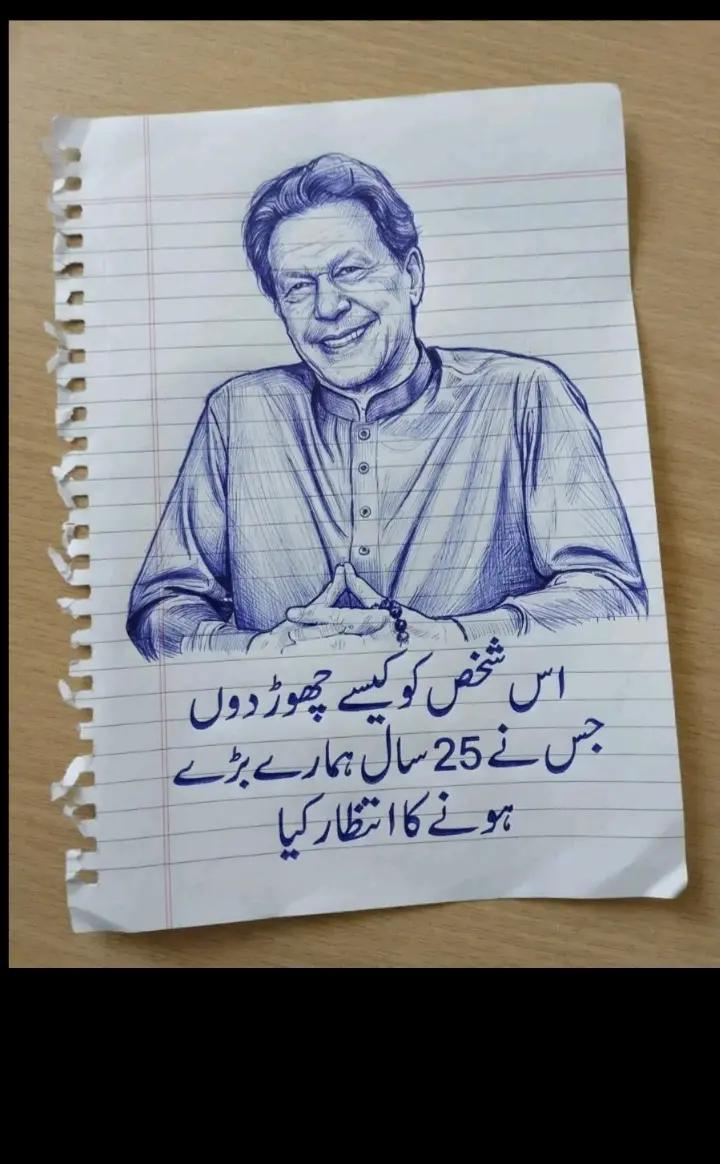 اس شخص کو کیسے چھوڑ دوں
جس نے 25 سال ہمارے بڑے
ہونے کا انتظار کیا